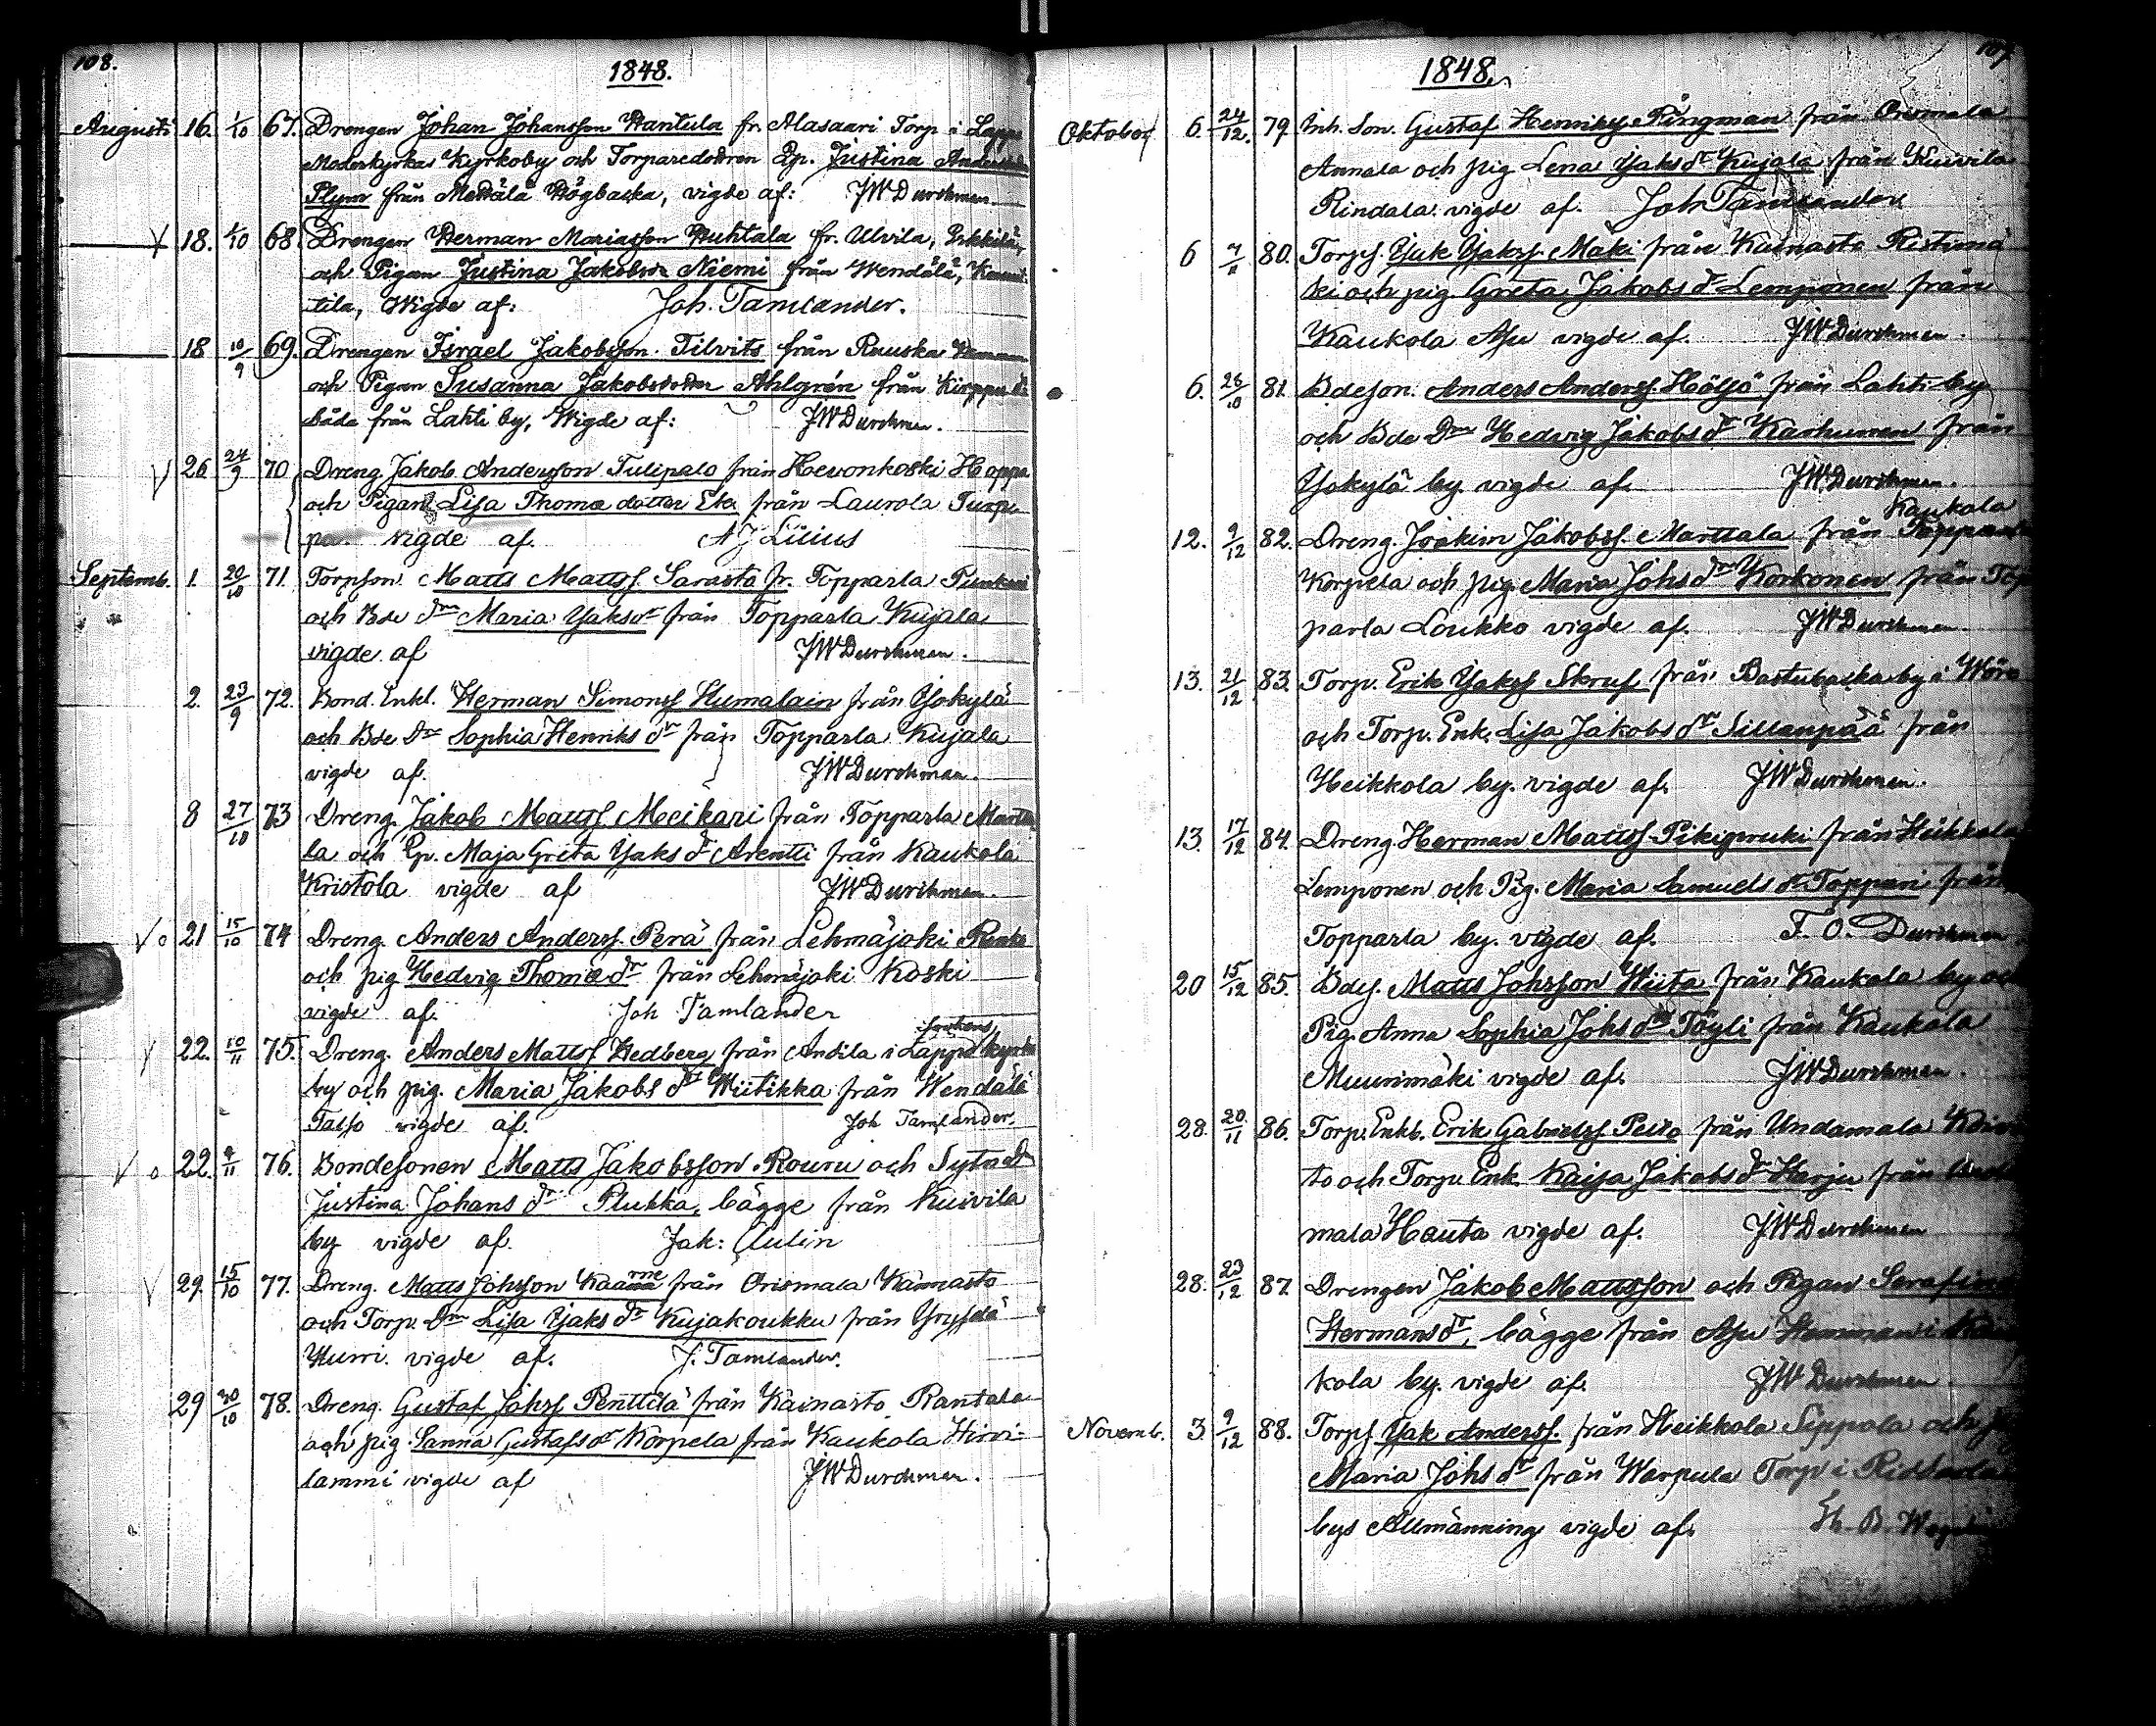 108.
1848.
Augusti 16. 1/10 67. Drengen Johan Johansson Wantula fr. Alasaari Torp i Lappo
Moderkyrkas Kyrkoby och Torparedottren Qp. Justina Anders
Plym från Medälä Högbacka, vigde af: JW Durchman
18. 1/10 68. Drengen Herman Mariasson Huhtala fr. Ulvila, Erkkilä,
och Pigan Justina Jakobsdr Niemi från Wendälä,
tila, Wigde af: Joh. Tamlander.
18 10/9 69. Drengen Israel Jakobsson Tilvits från Ruuska
och Pigan Susanna Jakobsdotter Ahlgrén från Kirppu
båda från Lahti by, Wigde af: JW Durchman.
26 24/9 70 Dreng Jakob Andersson Tulipalo från Hevonkoski Hoppa
och Pigan Lisa Thomæ dotter Eka från Laurola Turpu
pu. vigde af. A J Lilius
Septemb. 1. 20/10 71. Torpson Matts Mattsf Sarasto fr. Topparla
och Bde dm Maria Yaksdr från Topparla Kujala
vigde af JW Durchman.
2. 23/9 72. Bond. Enkl. Herman Simonsf Humalain från Yokylä
och Bde Dm Sophia Henriks dr från Topparla Kujala
vigde af. JW Durchman.
8 27/10 73 Dreng. Jakob Mattsf Meikari från Topparla Martta
la och Qp. Maja Greta Yaks dr Arentti från Kaukola
Kristola vigde af JW Durchman.
21 15/10 74 Dreng. Anders Andersf. Perä från Lehmäjoki
och pig Hedvig Thomæ dr från Lehmäjoki Koski
vigde af. Joh Tamlander
sockens
22. 10/11 75. Dreng. Anders Mattsf Hedberg från Andila i Lappo kyrko
by och pig. Maria Jakobs dr Wiitikka från Wendälä
Talso vigde af. Joh Tamlander.
22. 9/11 76. Bondesonen Matts Jakobsson Rouru och Sytn D
Justina Johans dr Plukka, bägge från Kuivila
by vigde af. Jak: Aulin
29. 15/10 77. Dreng. Matts Johsson Kaarne från Orismala Kainasto
och Torp. Dm Lisa Yjaks dr Kujakoukku från Yrysdä
Hurri. vigde af. J. Tamlander.
29 30/10 78. Dreng. Gustaf Johsf Penttilä från Kainasto Rantala
och pig. Sanna Gustafs dr Korpela från Kaukola Hirvi-
lammi vigde af JW Durchman.
107
1848.
Oktober 6. 24/12. 79. Inh. Son. Gustaf Henriksf Ringman från Orismala
Annala och pig Lena Yaks dr Kujala från Kuivila
Rindala. vigde af. Joh Tamlander
6 7/11 80. Torpf. Yak Yaksf. Mäki från Kainasto Ristimä
ki och pig Greta Jakobs dr Lemponen från
Kaukola Asu vigde af. JW Durchman.
6. 26/10 81. Bdeson. Anders Andersf. Höljö från Lahti by
och Bde Dm Hedvig Jakobs dr Karhunen från
Yokylä by. vigde af. JW Durchman.
Kaukola
12. 9/12 82. Dreng. Joakim Jakobsf. Marttala från Topparla
Korpela och pig. Maria Johs dr Korkonen från Top
parla Loukko vigde af. JW Durchman
13. 21/12 83. Torp. Erik Yaksf Skruf från Bastubacka by i Wörå
och Torp. Enk. Lisa Jakobs dr Sillanpää från
Heikkola by. vigde af. JW Durchman.
13. 17/12 84. Dreng. Herman Mattsf Pikipruki från Heikkola
Lemponen och Pig. Maria Samuels dr Toppari från
Topparla by. vigde af. F. O. Durchman
20 15/12 85. Bdef. Matts Johsson Wiita från Kaukola by och
Pig. Anna Sophia Johs dr Töyli från Kaukola
Muurimäki vigde af. JW Durchman.
28. 20/11 86. Torp. Enkl. Erik Gabrielsf. Peiro från Undamala
to och Torp Enk. Kaisa Jakobs dr Harju från
mala Hauta vigde af. JW Durchman
28. 23/12 87. Drengen Jakob Mattsson och Pigan Serafina
Hermansdr, bägge från Asu Hemman i Kau
kola by. vigde af. JW Durchman
Novemb. 3 9/12 88. Torpf Yak Andersf. från Heikkola Sippola och
Maria Johs dr från Warpula Torp i
bys Allmänning vigde af.